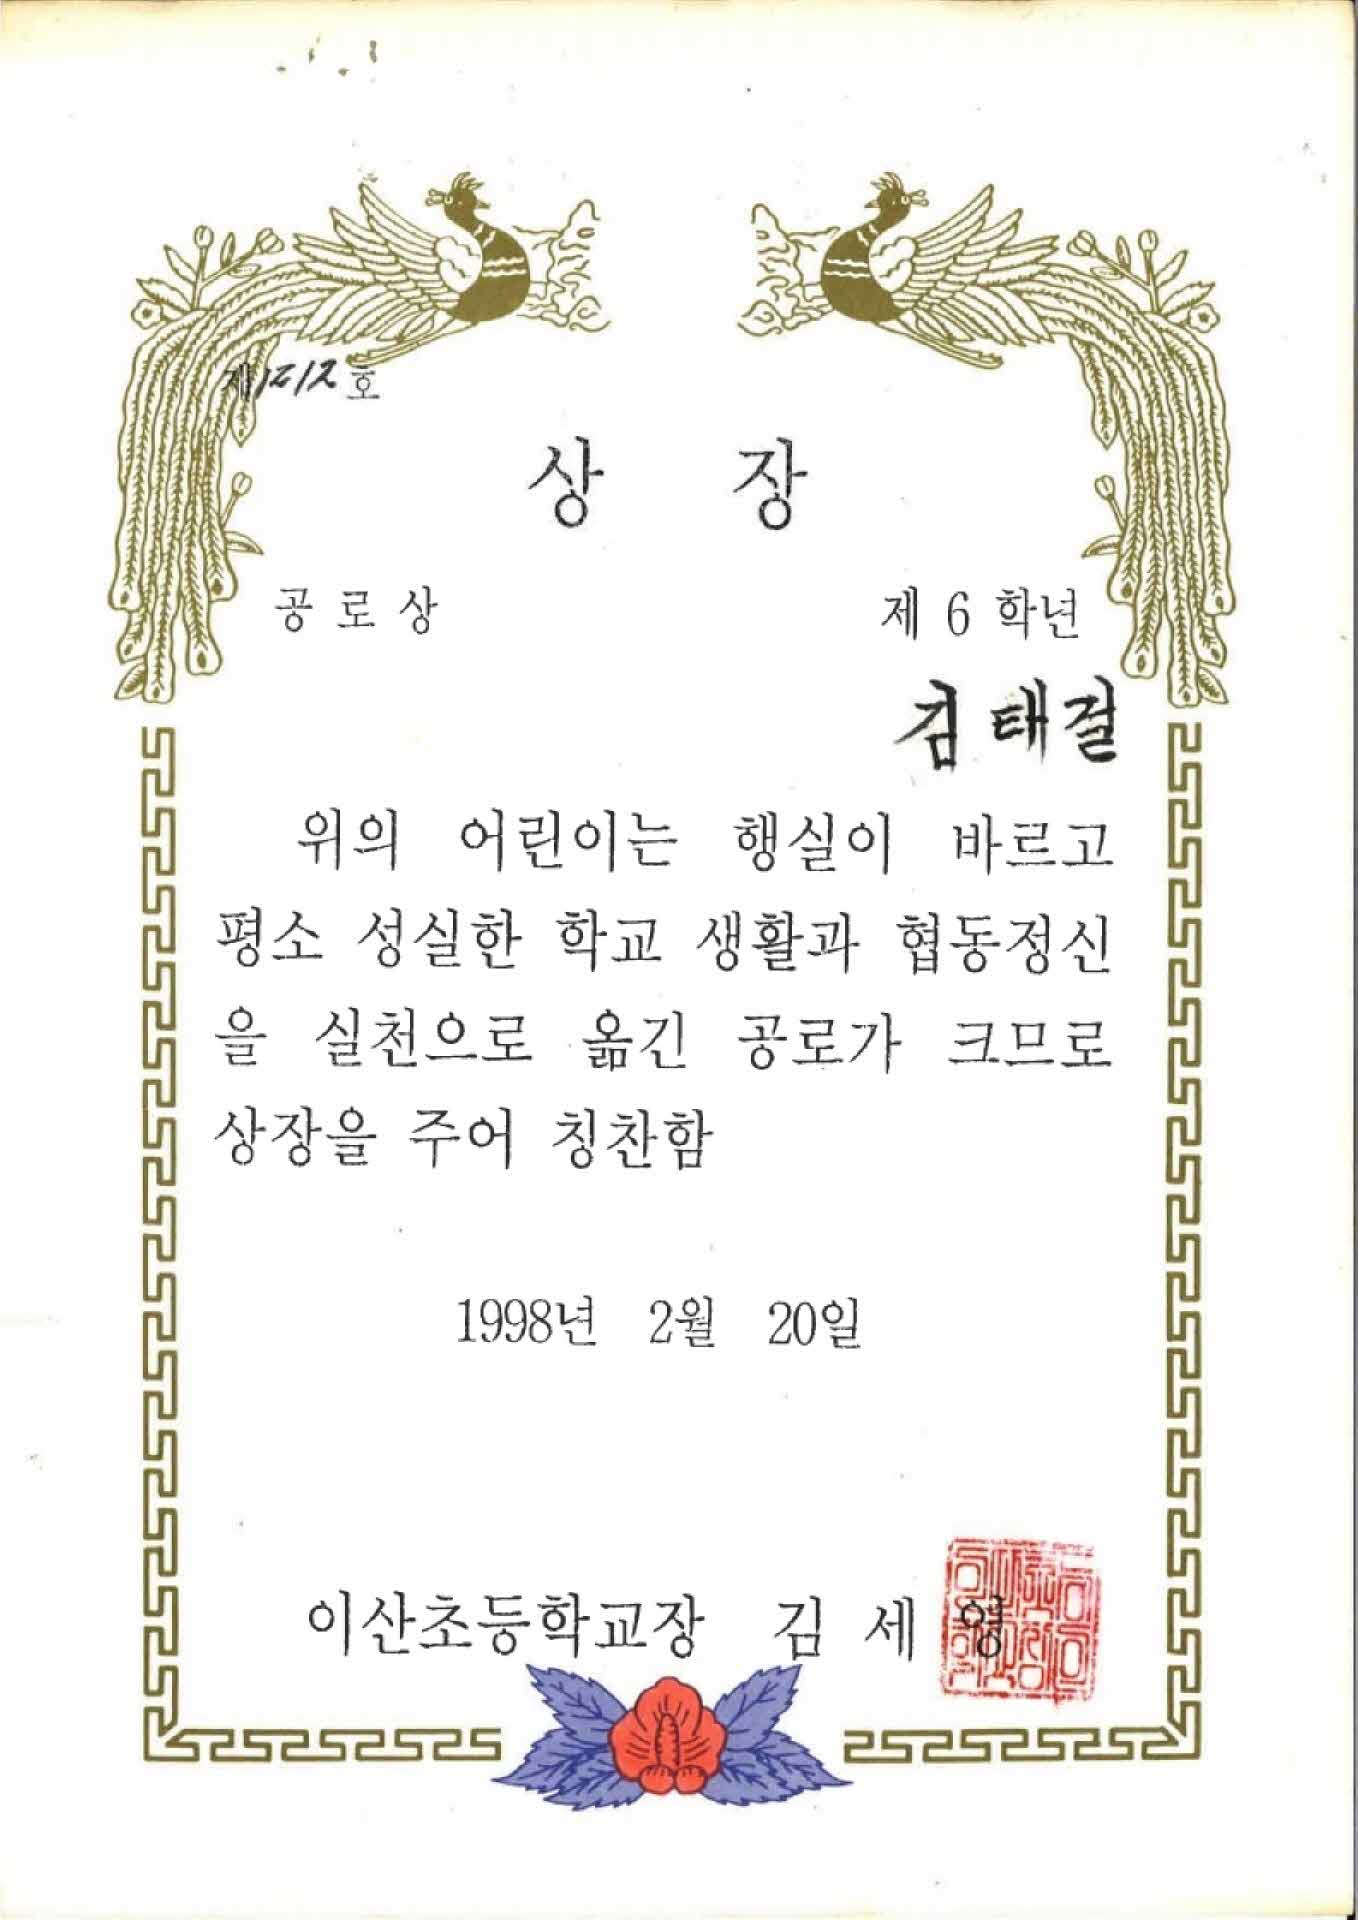 제1212호
상 장
공로상
제 6 학년
김태걸
위의 어린이는 행실이 바르고
평소 성실한 학교 생활과 협동정신
을 실천으로 옮긴 공로가 크므로
상장을 주어 칭찬함
1998년 2월 20일
이산초등학교장 김 세 영